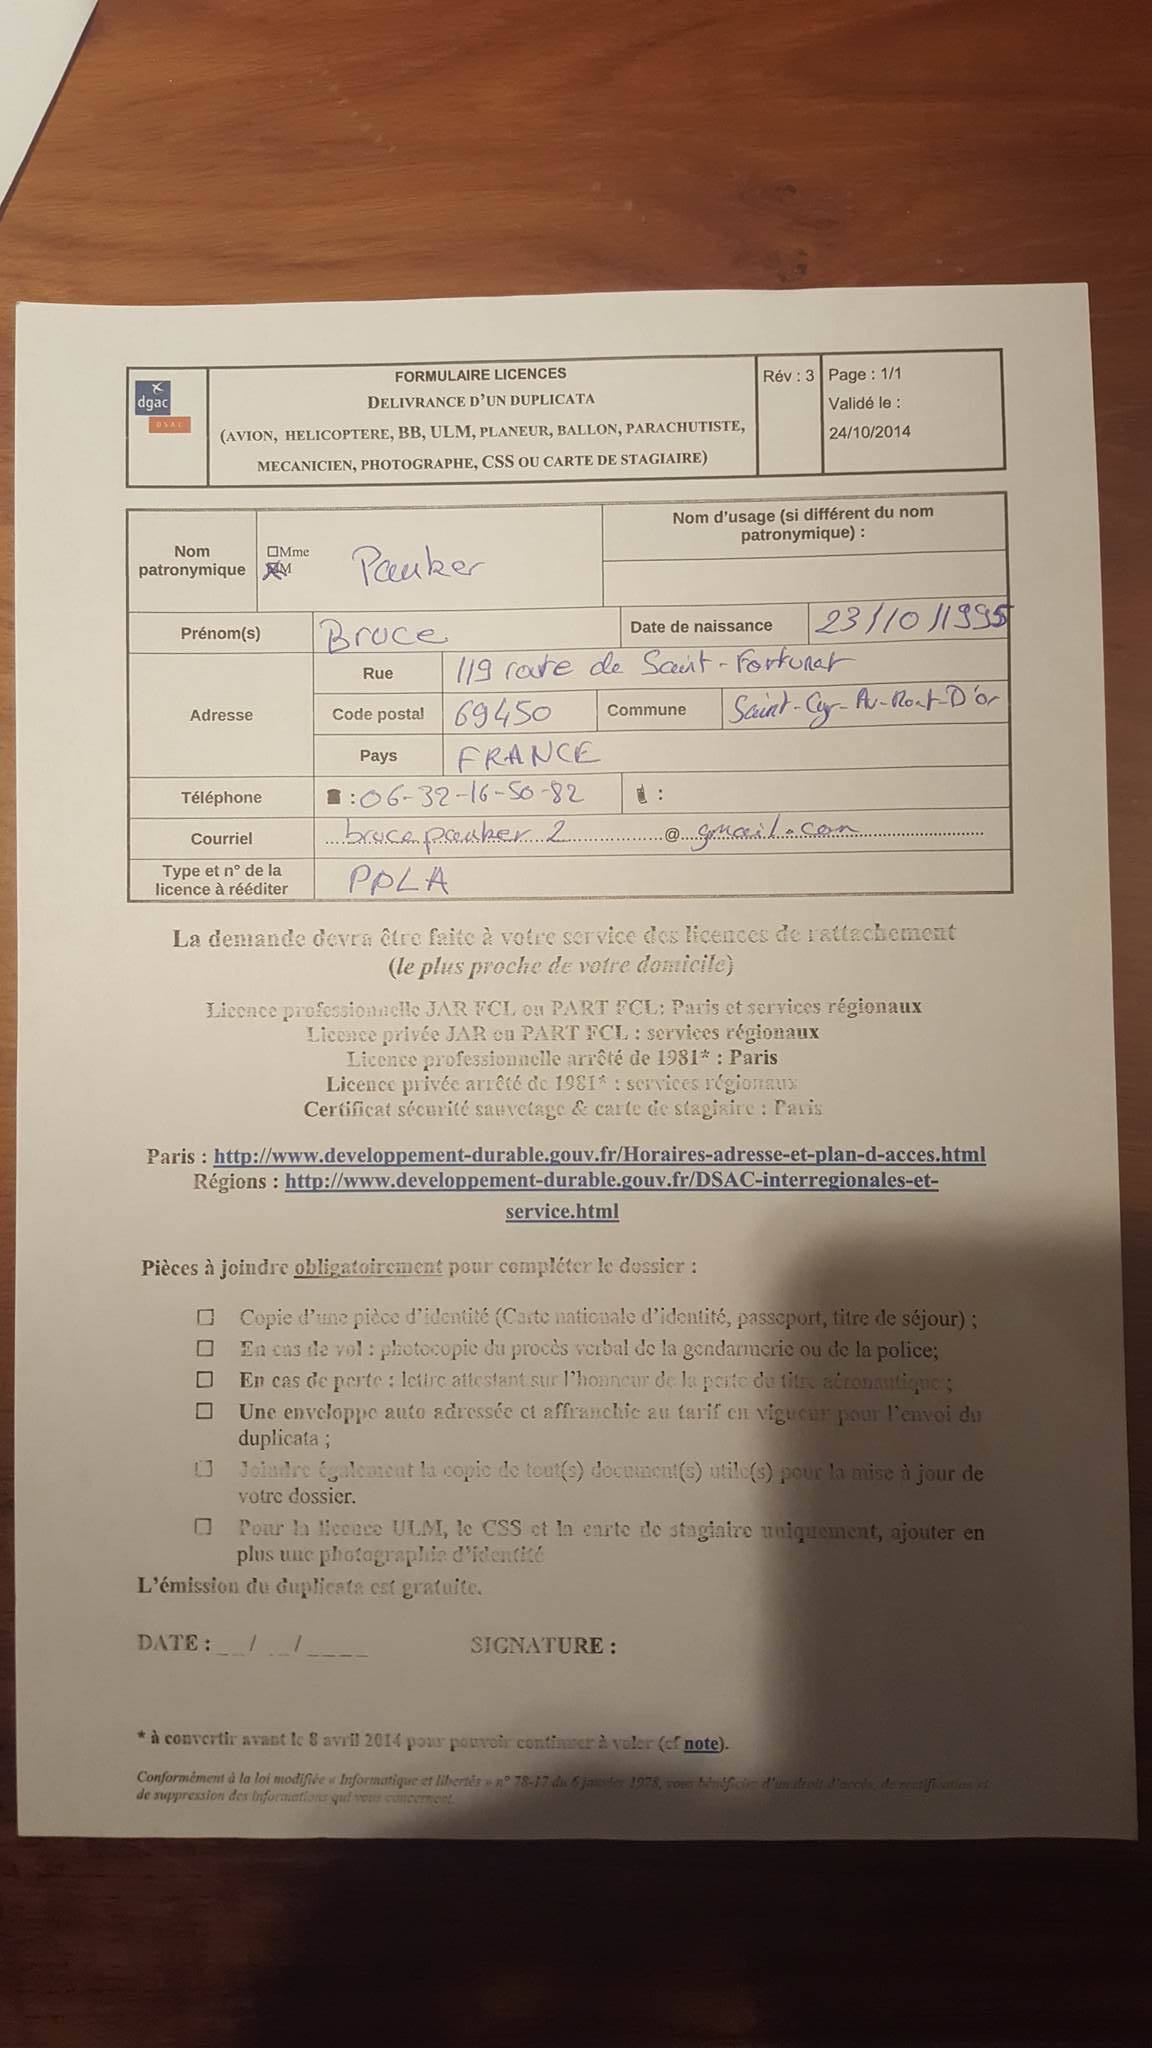 dgac
DSAC
FORMULAIRE LICENCES
DELIVRANCE D'UN DUPLICATA
(AVION, HELICOPTERE, BB, ULM, PLANEUR, BALLON, PARACHUTISTE,
MECANICIEN, PHOTOGRAPHE, CSS OU CARTE DE STAGIAIRE)
Rév : 3
Page : 1/1
Validé le :
24/10/2014
Nom patronymique
☐Mme
☒M
Pauker
Nom d'usage (si différent du nom
patronymique) :
Prénom(s)
Bruce
Date de naissance
23/10/1995
Adresse
Rue
119 route de Saint-Fortunat
Code postal
69450
Commune
Saint-Cyr-Au-Mont-D'or
Pays
FRANCE
Téléphone
: 06-32-16-50-82
:
Courriel
brucepauker2@gmail.com
Type et n° de la
licence à rééditer
PPLA
La demande devra être faite à votre service des licences de rattachement
(le plus proche de votre domicile)
Licence professionnelle JAR FCL ou PART FCL: Paris et services régionaux
Licence privée JAR ou PART FCL : services régionaux
Licence professionnelle arrêté de 1981* : Paris
Licence privée arrêté de 1981* : services régionaux
Certificat sécurité sauvetage & carte de stagiaire : Paris
Paris : http://www.developpement-durable.gouv.fr/Horaires-adresse-et-plan-d-acces.html
Régions : http://www.developpement-durable.gouv.fr/DSAC-interregionales-et-
service.html
Pièces à joindre obligatoirement pour compléter le dossier :
☐ Copie d'une pièce d'identité (Carte nationale d'identité, passeport, titre de séjour) ;
☐ En cas de vol : photocopie du procès verbal de la gendarmerie ou de la police;
☐ En cas de perte : lettre attestant sur l'honneur de la perte du titre aéronautique ;
☐ Une enveloppe auto adressée et affranchie au tarif en vigueur pour l'envoi du
duplicata ;
☐ Joindre également la copie de tout(s) document(s) utile(s) pour la mise à jour de
votre dossier.
☐ Pour la licence ULM, le CSS et la carte de stagiaire uniquement, ajouter en
plus une photographie d'identité
L'émission du duplicata est gratuite.
DATE : __/__/____ SIGNATURE :
* à convertir avant le 8 avril 2014 pour pouvoir continuer à voler (cf note).
Conformément à la loi modifiée « Informatique et libertés » n° 78-17 du 6 janvier 1978, vous bénéficiez d'un droit d'accès, de rectification et
de suppression des informations qui vous concernent.